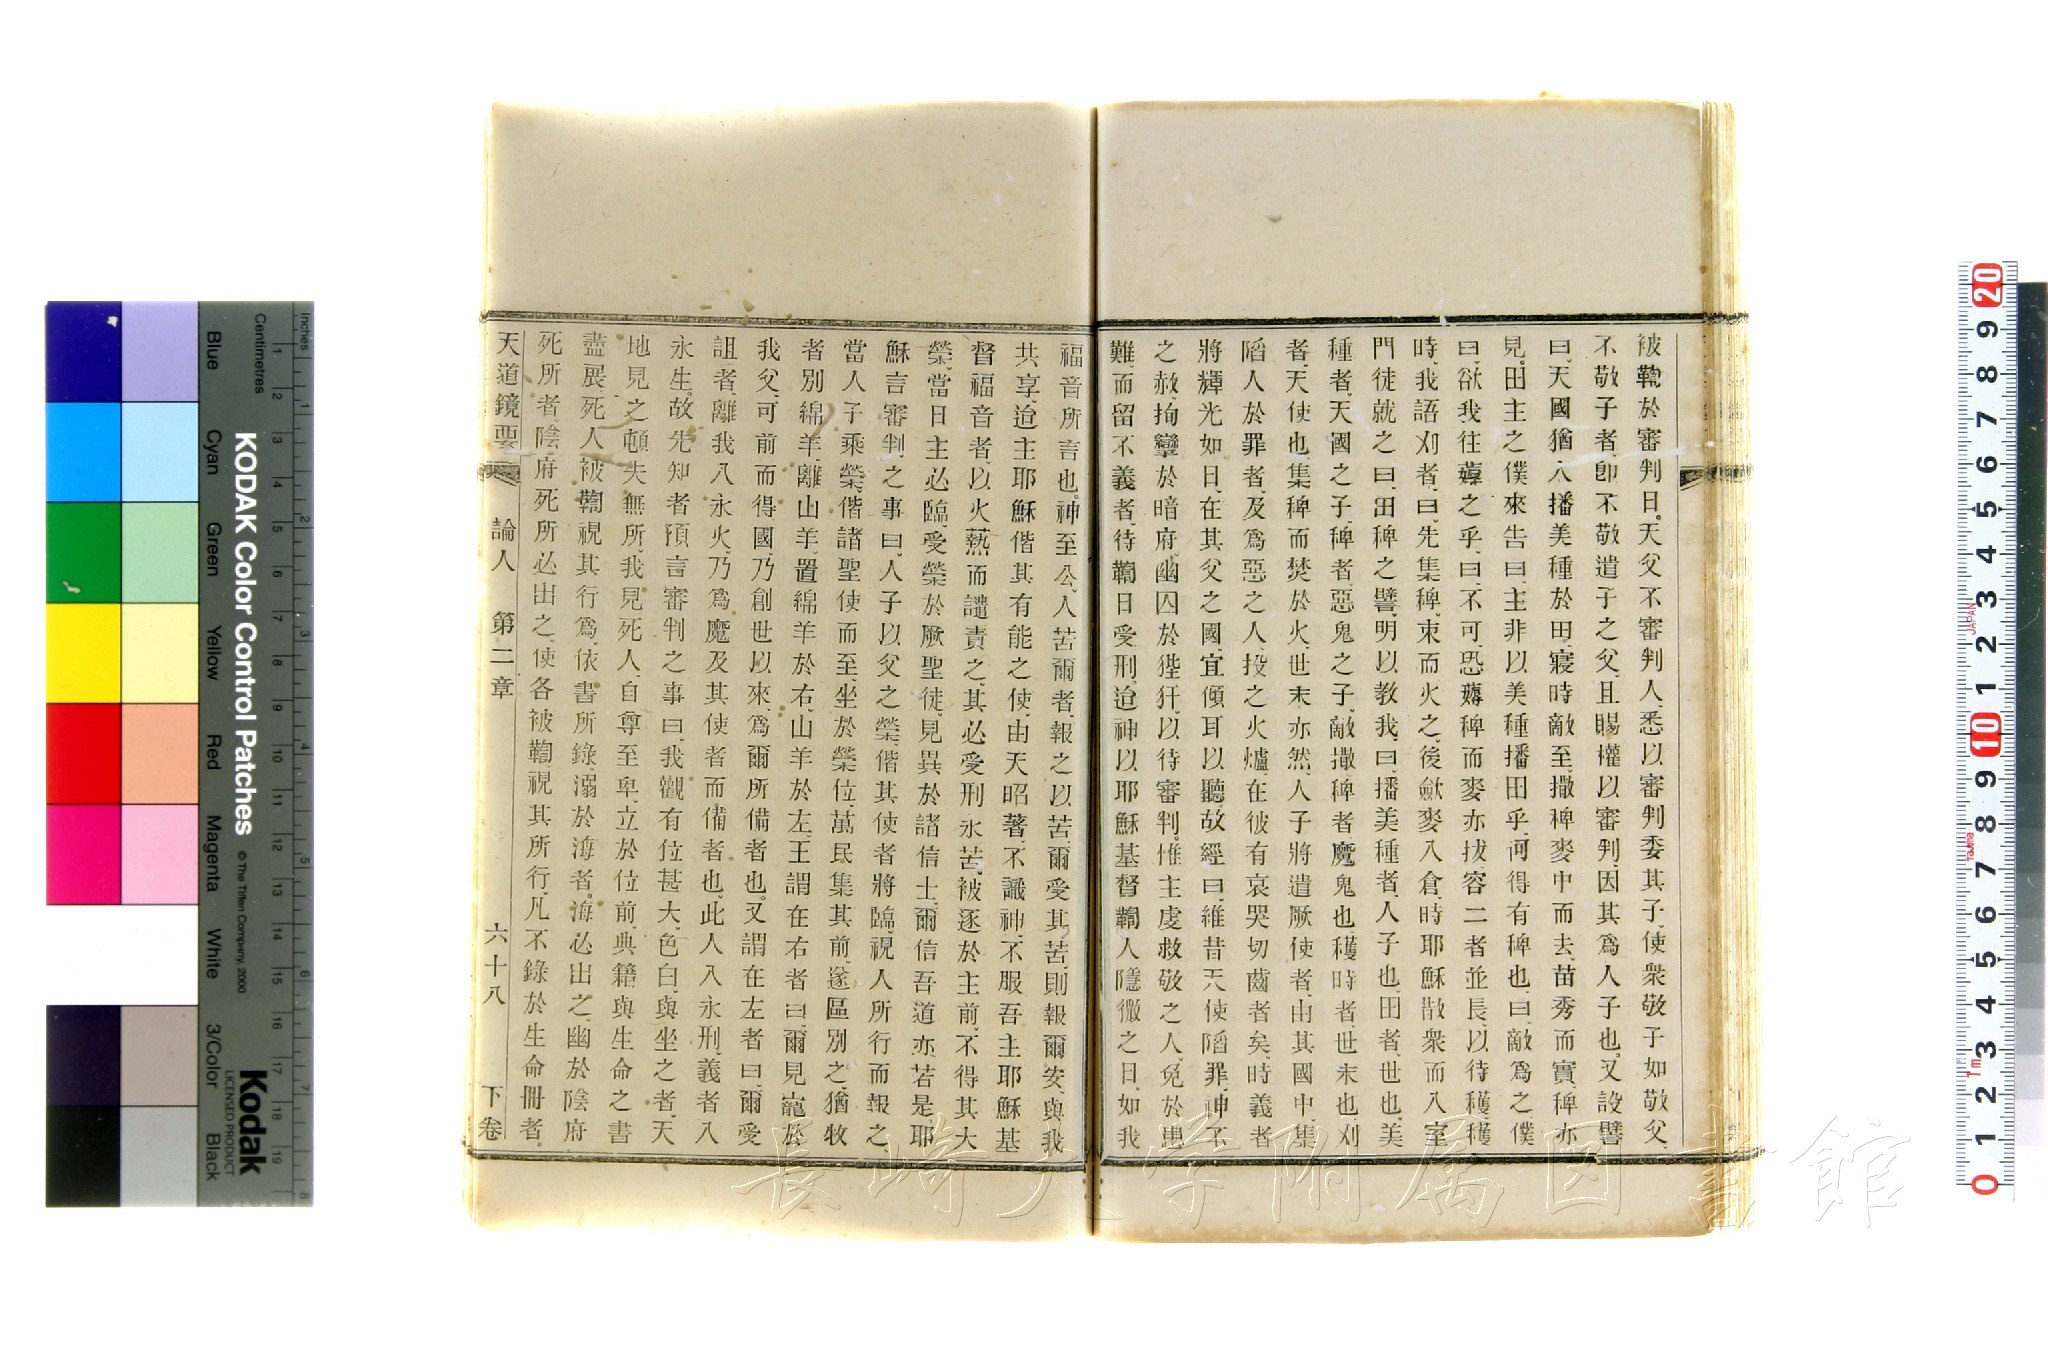 被鞫於審判日。天父不審判人、悉以審判委其子、使衆敬子如敬父、
不敬子者、卽不敬遣子之父、且賜權以審判、因其爲人子也。又設譬
曰、天國猶人播美種於田、寢時敵至、撒稗麥中而去、苗秀而實、稗亦
見。田主之僕來告曰、主非以美種播田乎、何得有稗也、曰、敵爲之、僕
曰、欲我往薅之乎、曰、不可、恐薅稗而麥亦拔、容二者並長、以待穫、穫
時、我語刈者、曰、先集稗、束而火之、後斂麥入倉、時耶穌散衆而入室
門徒就之曰、田稗之譬、明以教我、曰、播美種者、人子也、田者、世也、美
種者、天國之子、稗者、惡鬼之子、敵撒稗者、魔鬼也、穫時者、世末也、刈
者、天使也、集稗而焚於火、世末亦然、人子將遣厥使者、由其國中、集
陷人於罪者、及爲惡之人、投之火爐、在彼有哀哭切齒者矣、時義者
將輝光如日、在其父之國、宜傾耳以聽、故經曰、維昔天使陷罪、神不
之赦、拘攣於暗府、幽囚於狴犴、以待審判。惟主虔救敬之人、免於患
難、而留不義者、待鞫日受刑、迨神以耶穌基督鞫人隱微之日、如我
福音所言也。神至公、人苦爾者、報之以苦、爾受其苦、則報爾安、與我
共享、迨主耶穌偕其有能之使、由天昭著、不識神、不服吾主耶穌基
督福音者、以火熱而譴責之、其必受刑永苦、被逐於主前、不得其大
榮、當日主必臨、受榮於厥聖徒、見異於諸信士、爾信吾道亦若是、耶
穌言審判之事曰、人子以父之榮、偕其使者將臨、視人所行而報之、
當人子乘榮、偕諸聖使而至、坐於榮位、萬民集其前、遂區別之、猶牧
者別綿羊、離山羊、置綿羊於右、山羊於左、王謂在右者曰、爾見寵於
我父、可前而得國、乃創世以來、爲爾所備者也。又謂在左者曰、爾受
詛者、離我入永火、乃爲魔及其使者而備者也、此人入永刑、義者入
永生。故先知者預言審判之事曰、我觀有位甚大、色白、與坐之者、天
地見之、頓失無所、我見死人、自尊至卑、立於位前、典籍與生命之書
盡展、死人被鞫、視其行爲、依書所錄、溺於海者、海必出之、幽於陰府
死所者、陰府死所必出之、使各被鞫、視其所行、凡不錄於生命冊者、
天道鏡要 論人 第二章 六十八 下卷
長崎大学附属図書館
KODAK Color Control Patches
© The Tiffen Company, 2000
Kodak
LICENSED PRODUCT
Inches
Centimetres
Blue Cyan Green Yellow Red Magenta White 3/Color Black